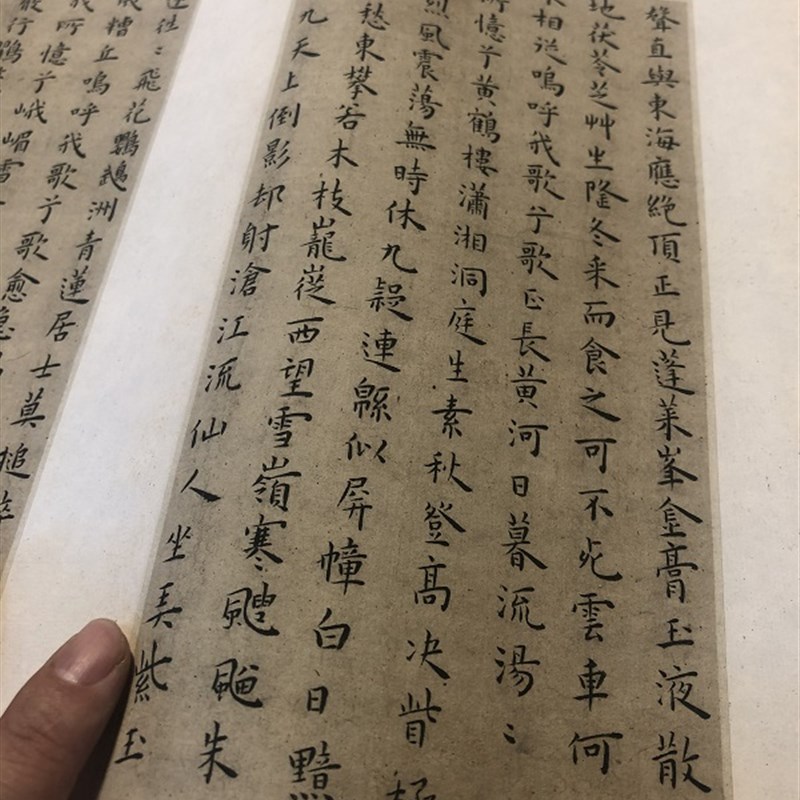 聲直與東海應絶頂正見蓬萊峯金膏玉液散
地茯苓芝艸生隆冬采而食之可不死雲車何
相從嗚呼我歌兮歌正長黃河日暮流湯〻
所憶兮黃鶴樓瀟湘洞庭生素秋登高決眥極
烈風震蕩無時休九疑連緜似屏幛白日黯
愁東攀若木枝巃嵸西望雪嶺寒颼飀朱
九天上倒影却射滄江流仙人坐弄紫玉
往〻飛花鸚鵡洲青蓮居士莫槌碎
糟丘嗚呼我歌兮歌愈
所憶兮峨嵋雪
行